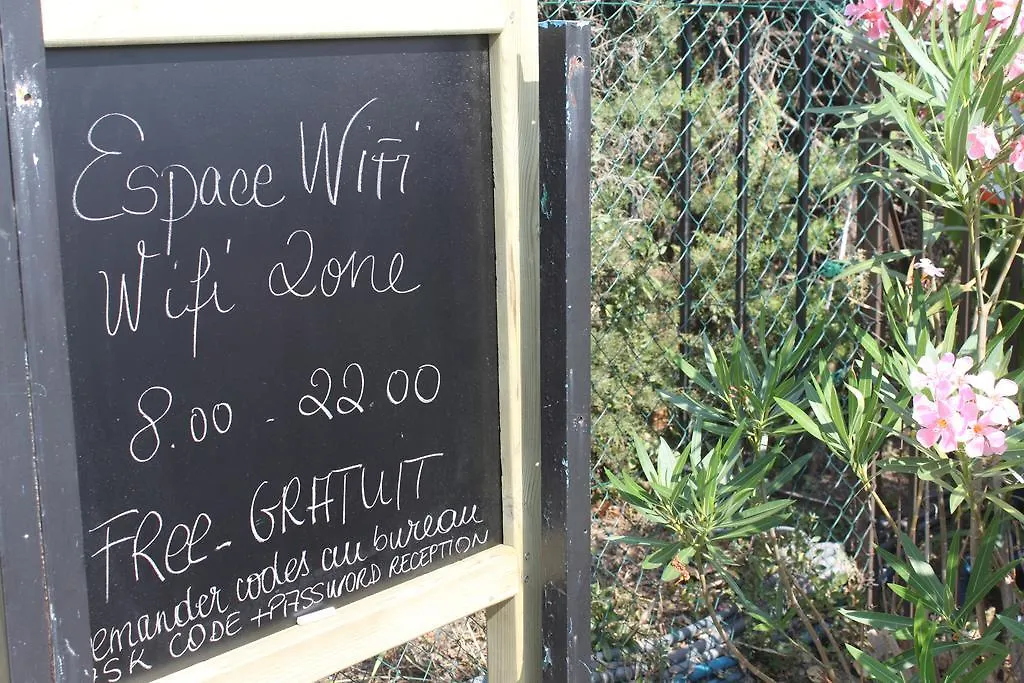 Espace Wifi
Wifi Zone
8.00 - 22.00
FRee - GRATUIT
emander codes au bureau
SK CODE + PASSWORD RECEPTION